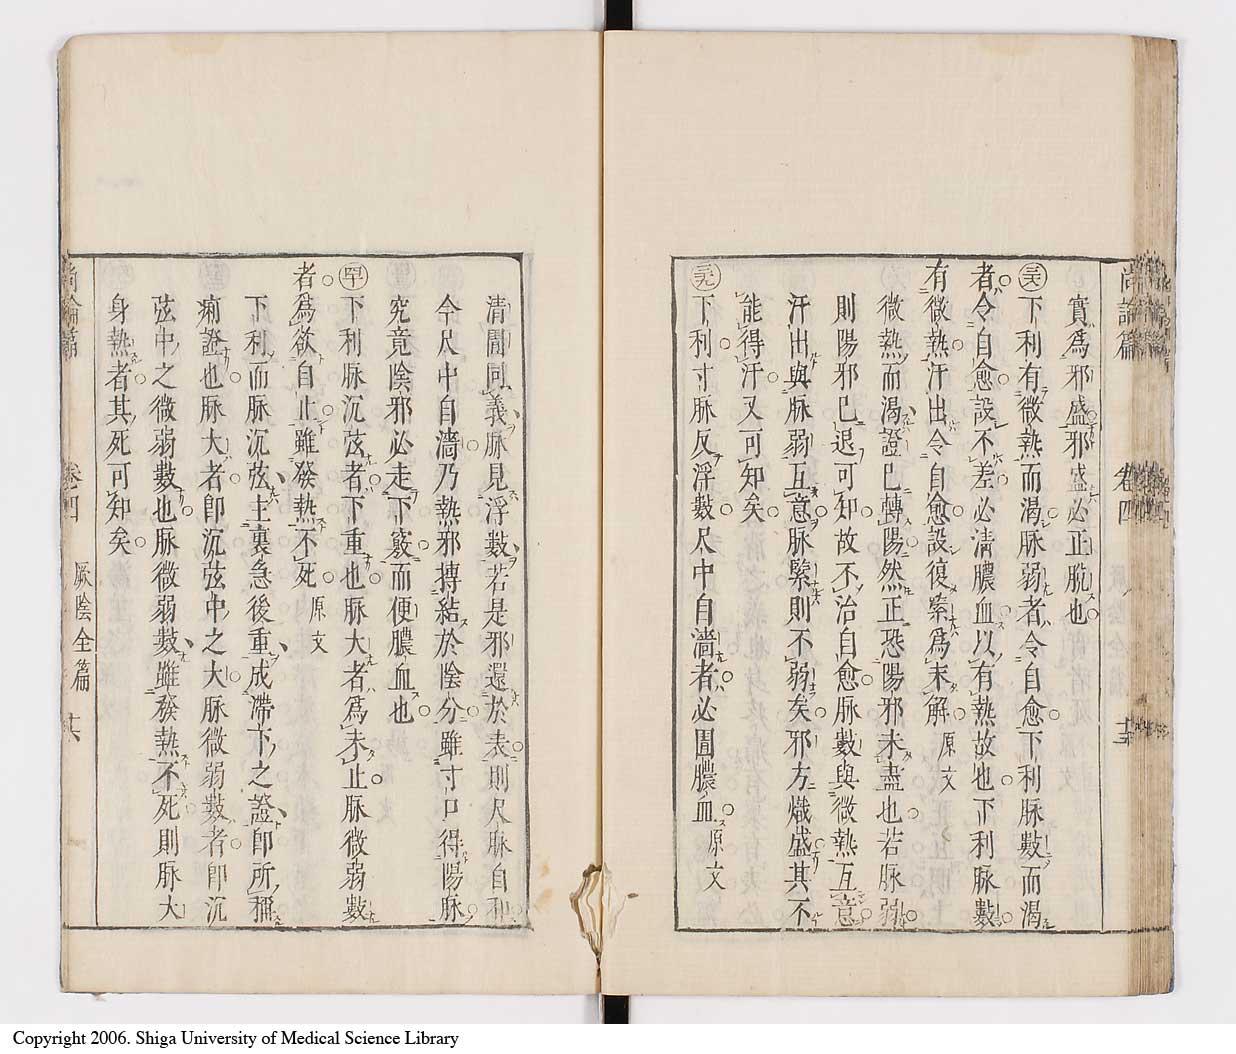 尚論篇 卷四
實爲邪盛邪盛必正脫也
下利有微熱而渴脈弱者令自愈下利脈數而渴
者令自愈設不差必清膿血以有熱故也下利脈數
有微熱汗出令自愈設復緊爲未解 原文
微熱而渴證巳轉陽然正恐陽邪未盡也若脈弱
則陽邪巳退可知故不治自愈脈數與微熱互意
汗出與脈弱互意脈緊則不弱矣邪方熾盛其不
能得汗又可知矣
下利寸脈反浮數尺中自濇者必圊膿血 原文
清圊同義脈見浮數若是邪還於表則尺脈自和
今尺中自濇乃熱邪搏結於陰分雖寸口得陽脈
究竟陰邪必走下竅而便膿血也
下利脈沉弦者下重也脈大者爲未止脈微弱數
者爲欲自止雖發熱不死 原文
下利而脈沉弦主裏急後重成滯下之證即所稱
痢證也脈大者卽沉弦中之大脈微弱數者卽沉
弦中之微弱數也脈微弱數雖發熱不死則脈大
身熱者其死可知矣
尚論篇 卷四 厥陰全篇
Copyright 2006. Shiga University of Medical Science Library